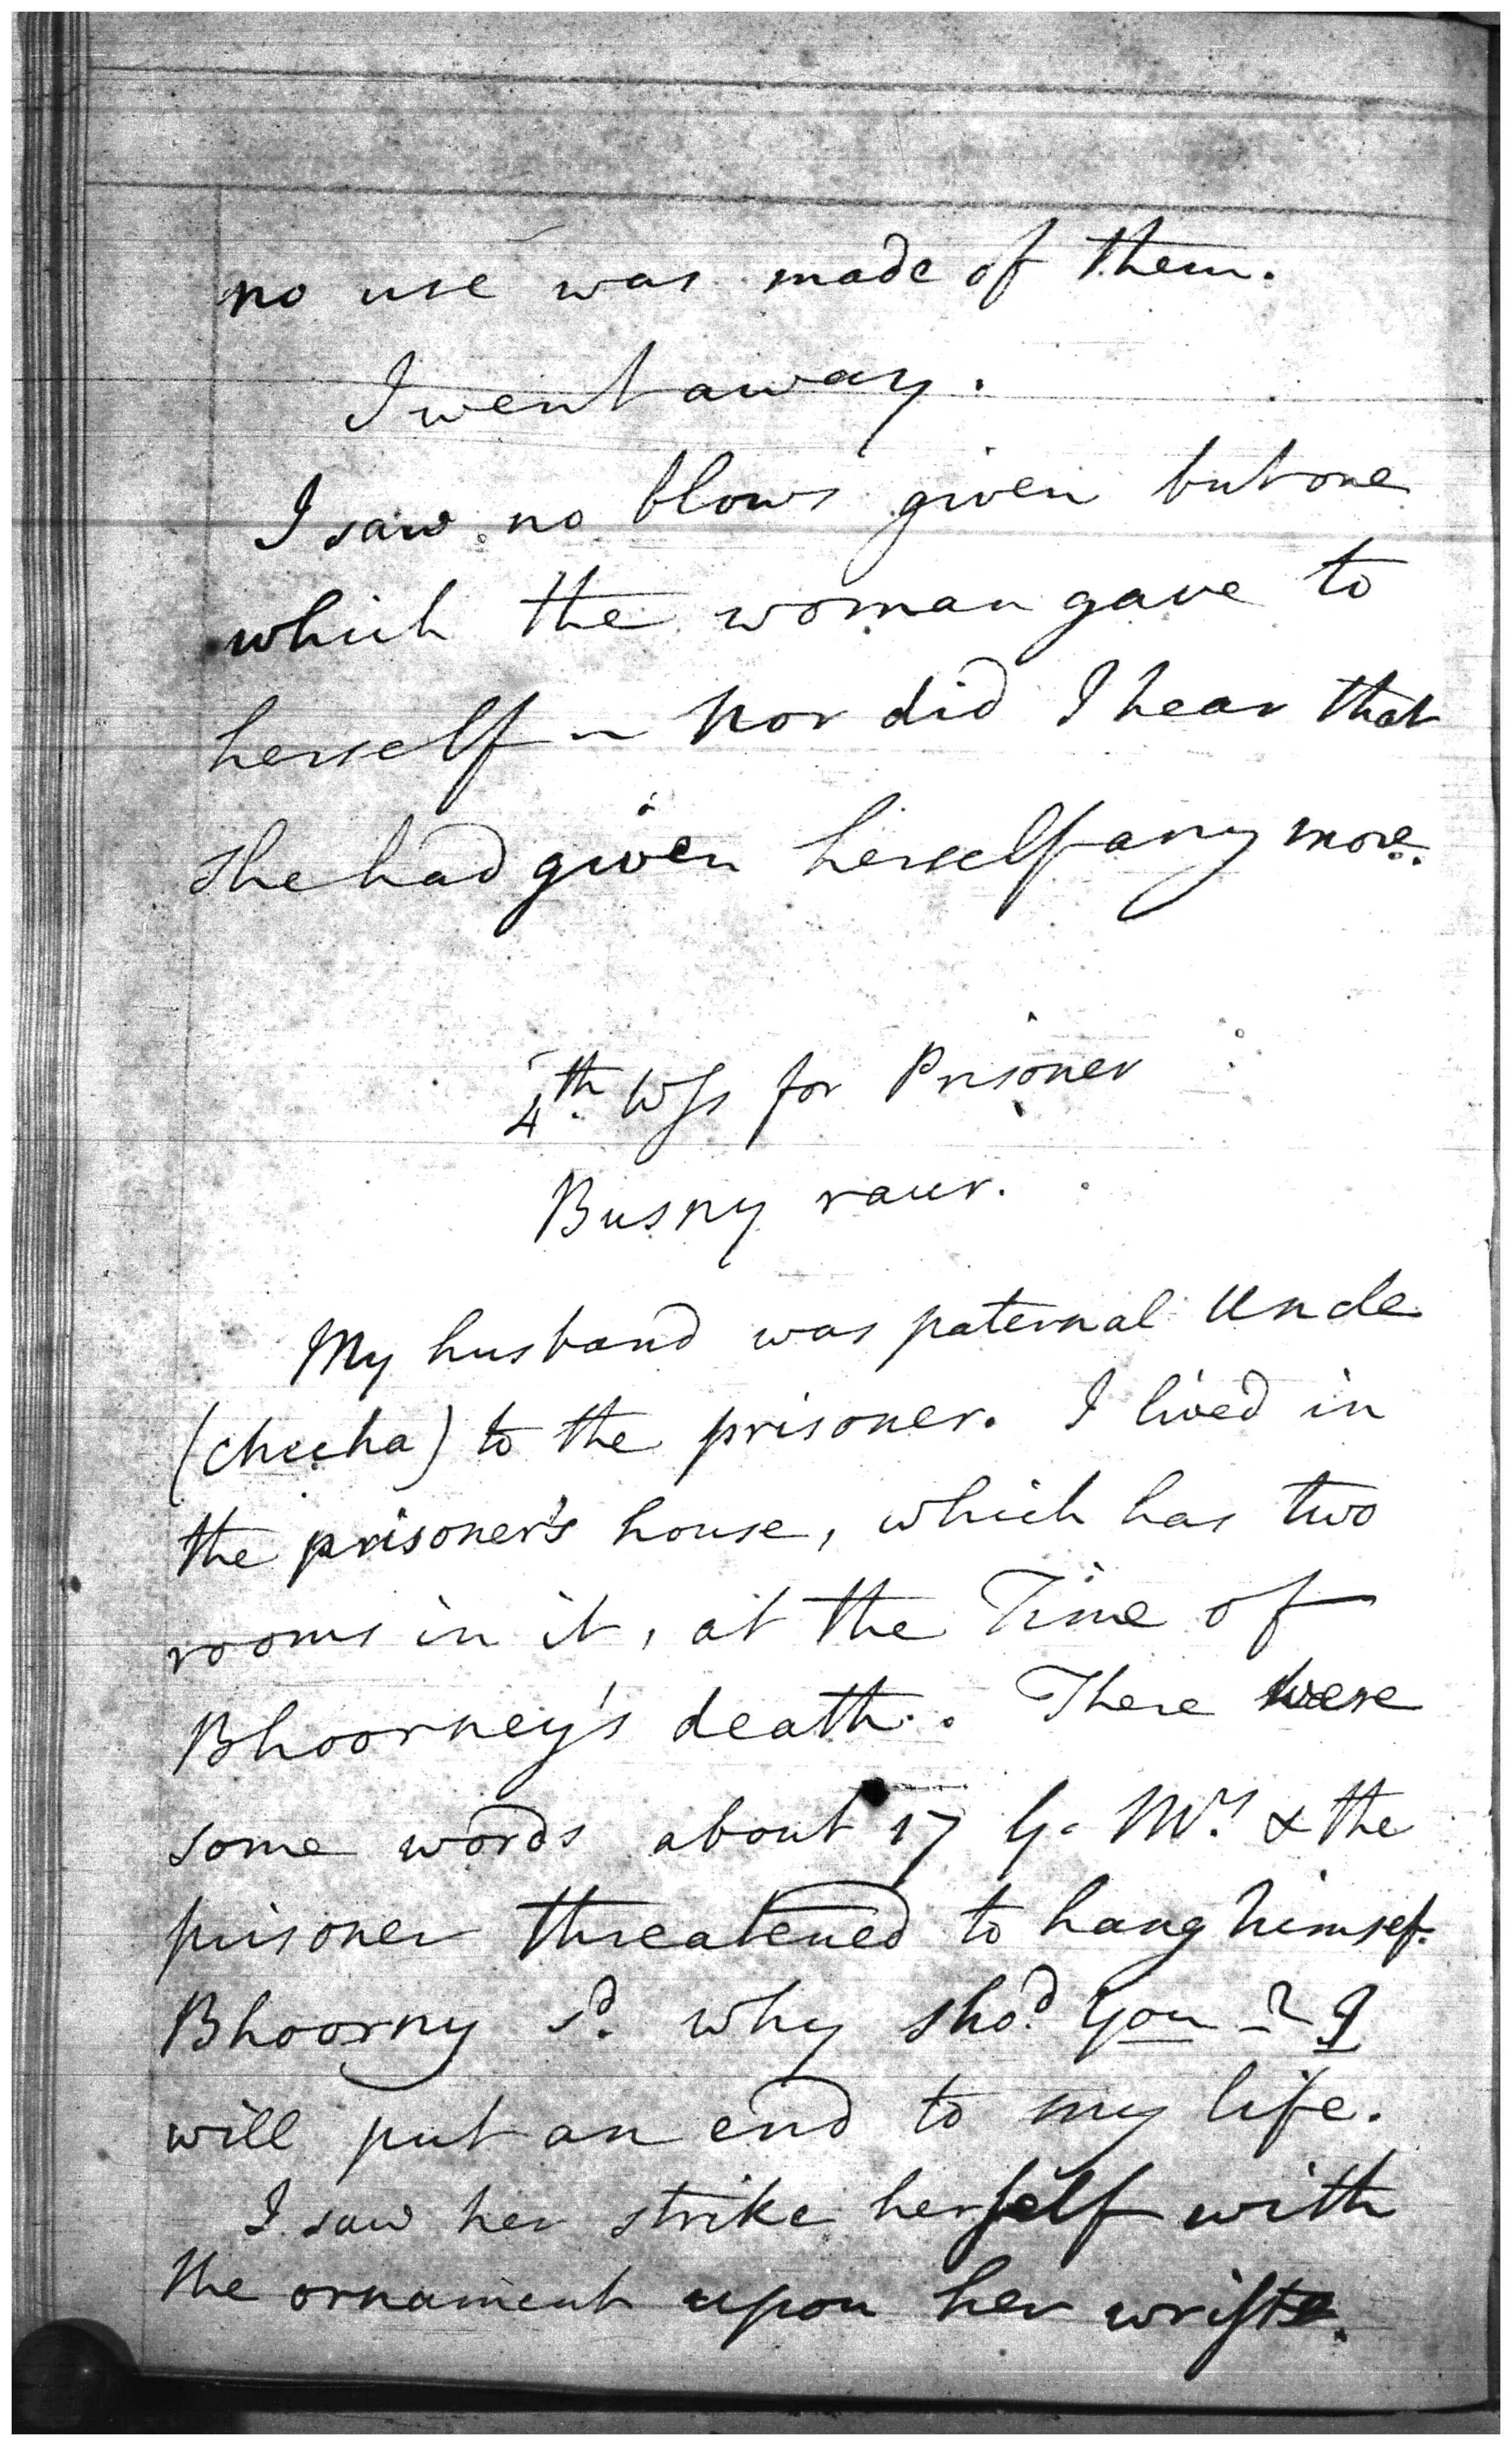 no use was made of them.
I went away.
I saw no blows given but one
which the woman gave to
herself - Nor did I hear that
she had given herself any more.
4th. Wss for Prisoner
Busny raur.
My husband was paternal Uncle
(chucha) to the prisoner. I lived in
the prisoner's house, which has two
rooms in it, at the Time of
Bhoorney's death. There were
some words about 17 G. Mrs. & the
prisoner threatened to hang himsef.
Bhoorny sd. why shod. you - ? I
will put an end to my life.
I saw her strike herself with
the ornament upon her wrists.